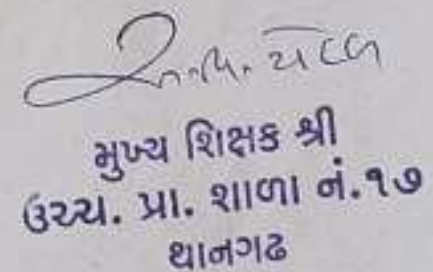 મુખ્ય શિક્ષક શ્રી
ઉચ્ચ. પ્રા. શાળા નં.૧૭
થાનગઢ